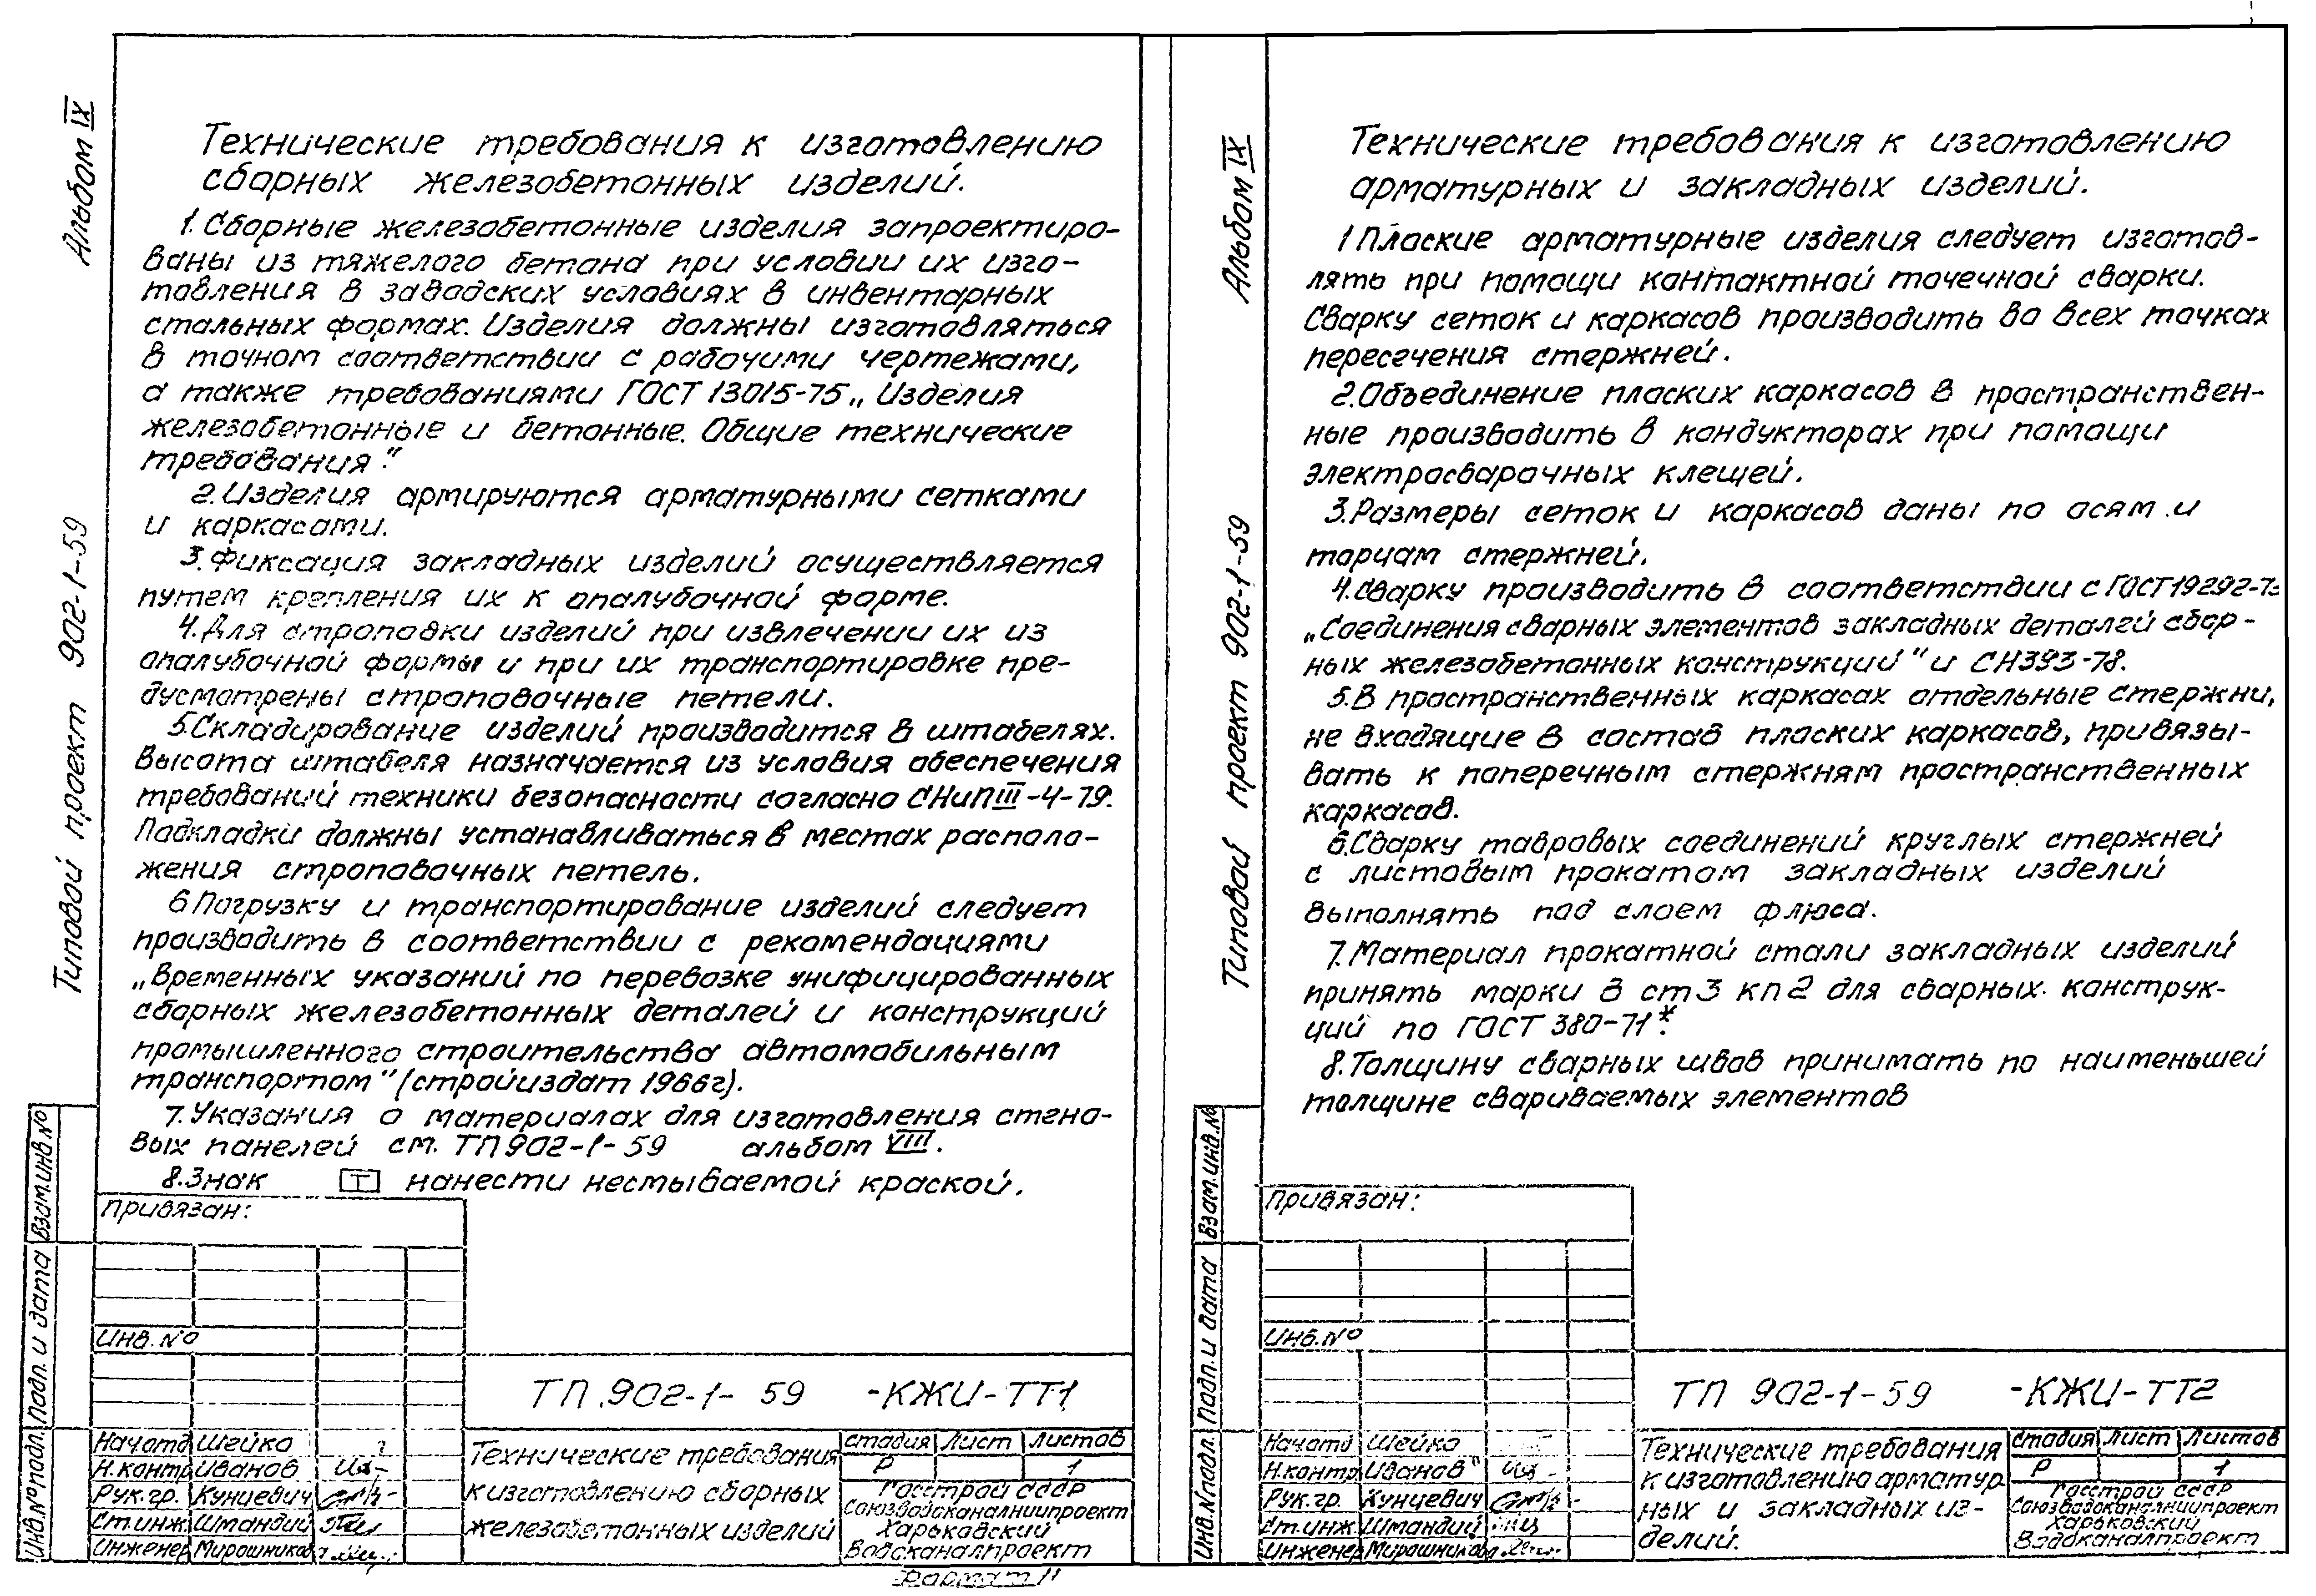 Альбом IX
Типовой проект 902-1-59
Технические требования к изготовлению
сборных железобетонных изделий.
1. Сборные железобетонные изделия запроектиро-
ваны из тяжелого бетона при условии их изго-
товления в заводских условиях в инвентарных
стальных формах. Изделия должны изготовляться
в точном соответствии с рабочими чертежами,
а также требованиями ГОСТ 13015-75 „Изделия
железобетонные и бетонные. Общие технические
требования".
2. Изделия армируются арматурными сетками
и каркасами.
3. Фиксация закладных изделий осуществляется
путем крепления их к опалубочной форме.
4. Для строповки изделий при извлечении их из
опалубочной формы и при их транспортировке пре-
дусмотрены строповочные петели.
5. Складирование изделий производится в штабелях.
Высота штабеля назначается из условия обеспечения
требований техники безопасности согласно СНиП III-4-79.
Подкладки должны устанавливаться в местах располо-
жения строповочных петель.
6 Погрузку и транспортирование изделий следует
производить в соответствии с рекомендациями
„Временных указаний по перевозке унифицированных
сборных железобетонных деталей и конструкций
промышленного строительства автомобильным
транспортом" (стройиздат 1966г).
7. Указания о материалах для изготовления стено-
вых панелей см. ТП 902-1-59 альбом VIII.
8. Знак Т нанести несмываемой краской.
Привязан:
Инв. №
ТП 902-1-59 -КЖИ-ТТ1
Нач отд Шейко
Н. контр Иванов
Рук. гр. Кунцевич
Ст. инж. Шмандий
Инженер Мирошникова
Технические требования
к изготовлению сборных
железобетонных изделий
стадия Лист Листов
Р 1
Госстрой СССР
Союзводоканалниипроект
Харьковский
Водоканалпроект
Формат 11
Взам. инв. №
Подп. и дата
Инв. № подл.
Альбом IX
Типовой проект 902-1-59
Технические требования к изготовлению
арматурных и закладных изделий.
1 Плоские арматурные изделия следует изготов-
лять при помощи контактной точечной сварки.
Сварку сеток и каркасов производить во всех точках
пересечения стержней.
2. Объединение плоских каркасов в пространствен-
ные производить в кондукторах при помощи
электросварочных клещей.
3. Размеры сеток и каркасов даны по осям и
торцам стержней.
4. Сварку производить в соответствии с ГОСТ 19292-73
„Соединения сварных элементов закладных деталей сбор-
ных железобетонных конструкций" и СН 393-78.
5. В пространственных каркасах отдельные стержни,
не входящие в состав плоских каркасов, привязы-
вать к поперечным стержням пространственных
каркасов.
6. Сварку тавровых соединений круглых стержней
с листовым прокатом закладных изделий
выполнять под слоем флюса.
7. Материал прокатной стали закладных изделий
принять марки В ст 3 кп 2 для сварных конструк-
ций по ГОСТ 380-71*.
8. Толщину сварных швов принимать по наименьшей
толщине свариваемых элементов
Привязан:
Инв. №
ТП 902-1-59 -КЖИ-ТТ2
Нач отд Шейко
Н. контр. Иванов
Рук. гр. Кунцевич
Ст. инж. Шмандий
Инженер Мирошникова
Технические требования
к изготовлению арматур-
ных и закладных из-
делий.
стадия Лист Листов
Р 1
Госстрой СССР
Союзводоканалниипроект
Харьковский
Водоканалпроект
Взам. инв. №
Подп. и дата
Инв. № подл.